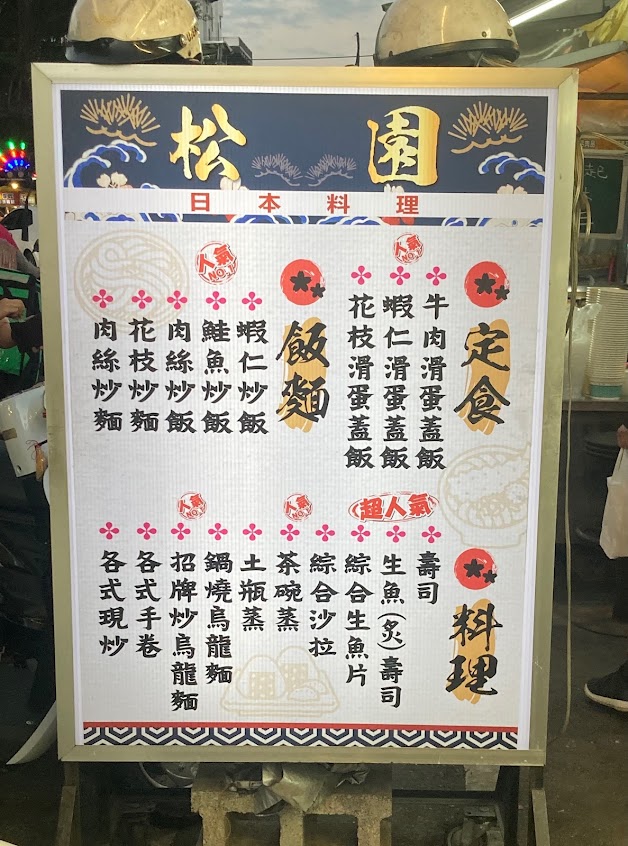 松園
日本料理
定食
牛肉滑蛋蓋飯
蝦仁滑蛋蓋飯
人氣
花枝滑蛋蓋飯
飯麵
蝦仁炒飯
鮭魚炒飯
人氣
肉絲炒飯
花枝炒麵
肉絲炒麵
料理
超人氣
壽司
生魚(炙)壽司
綜合生魚片
綜合沙拉
茶碗蒸
人氣
土瓶蒸
鍋燒烏龍麵
招牌炒烏龍麵
人氣
各式手卷
各式現炒